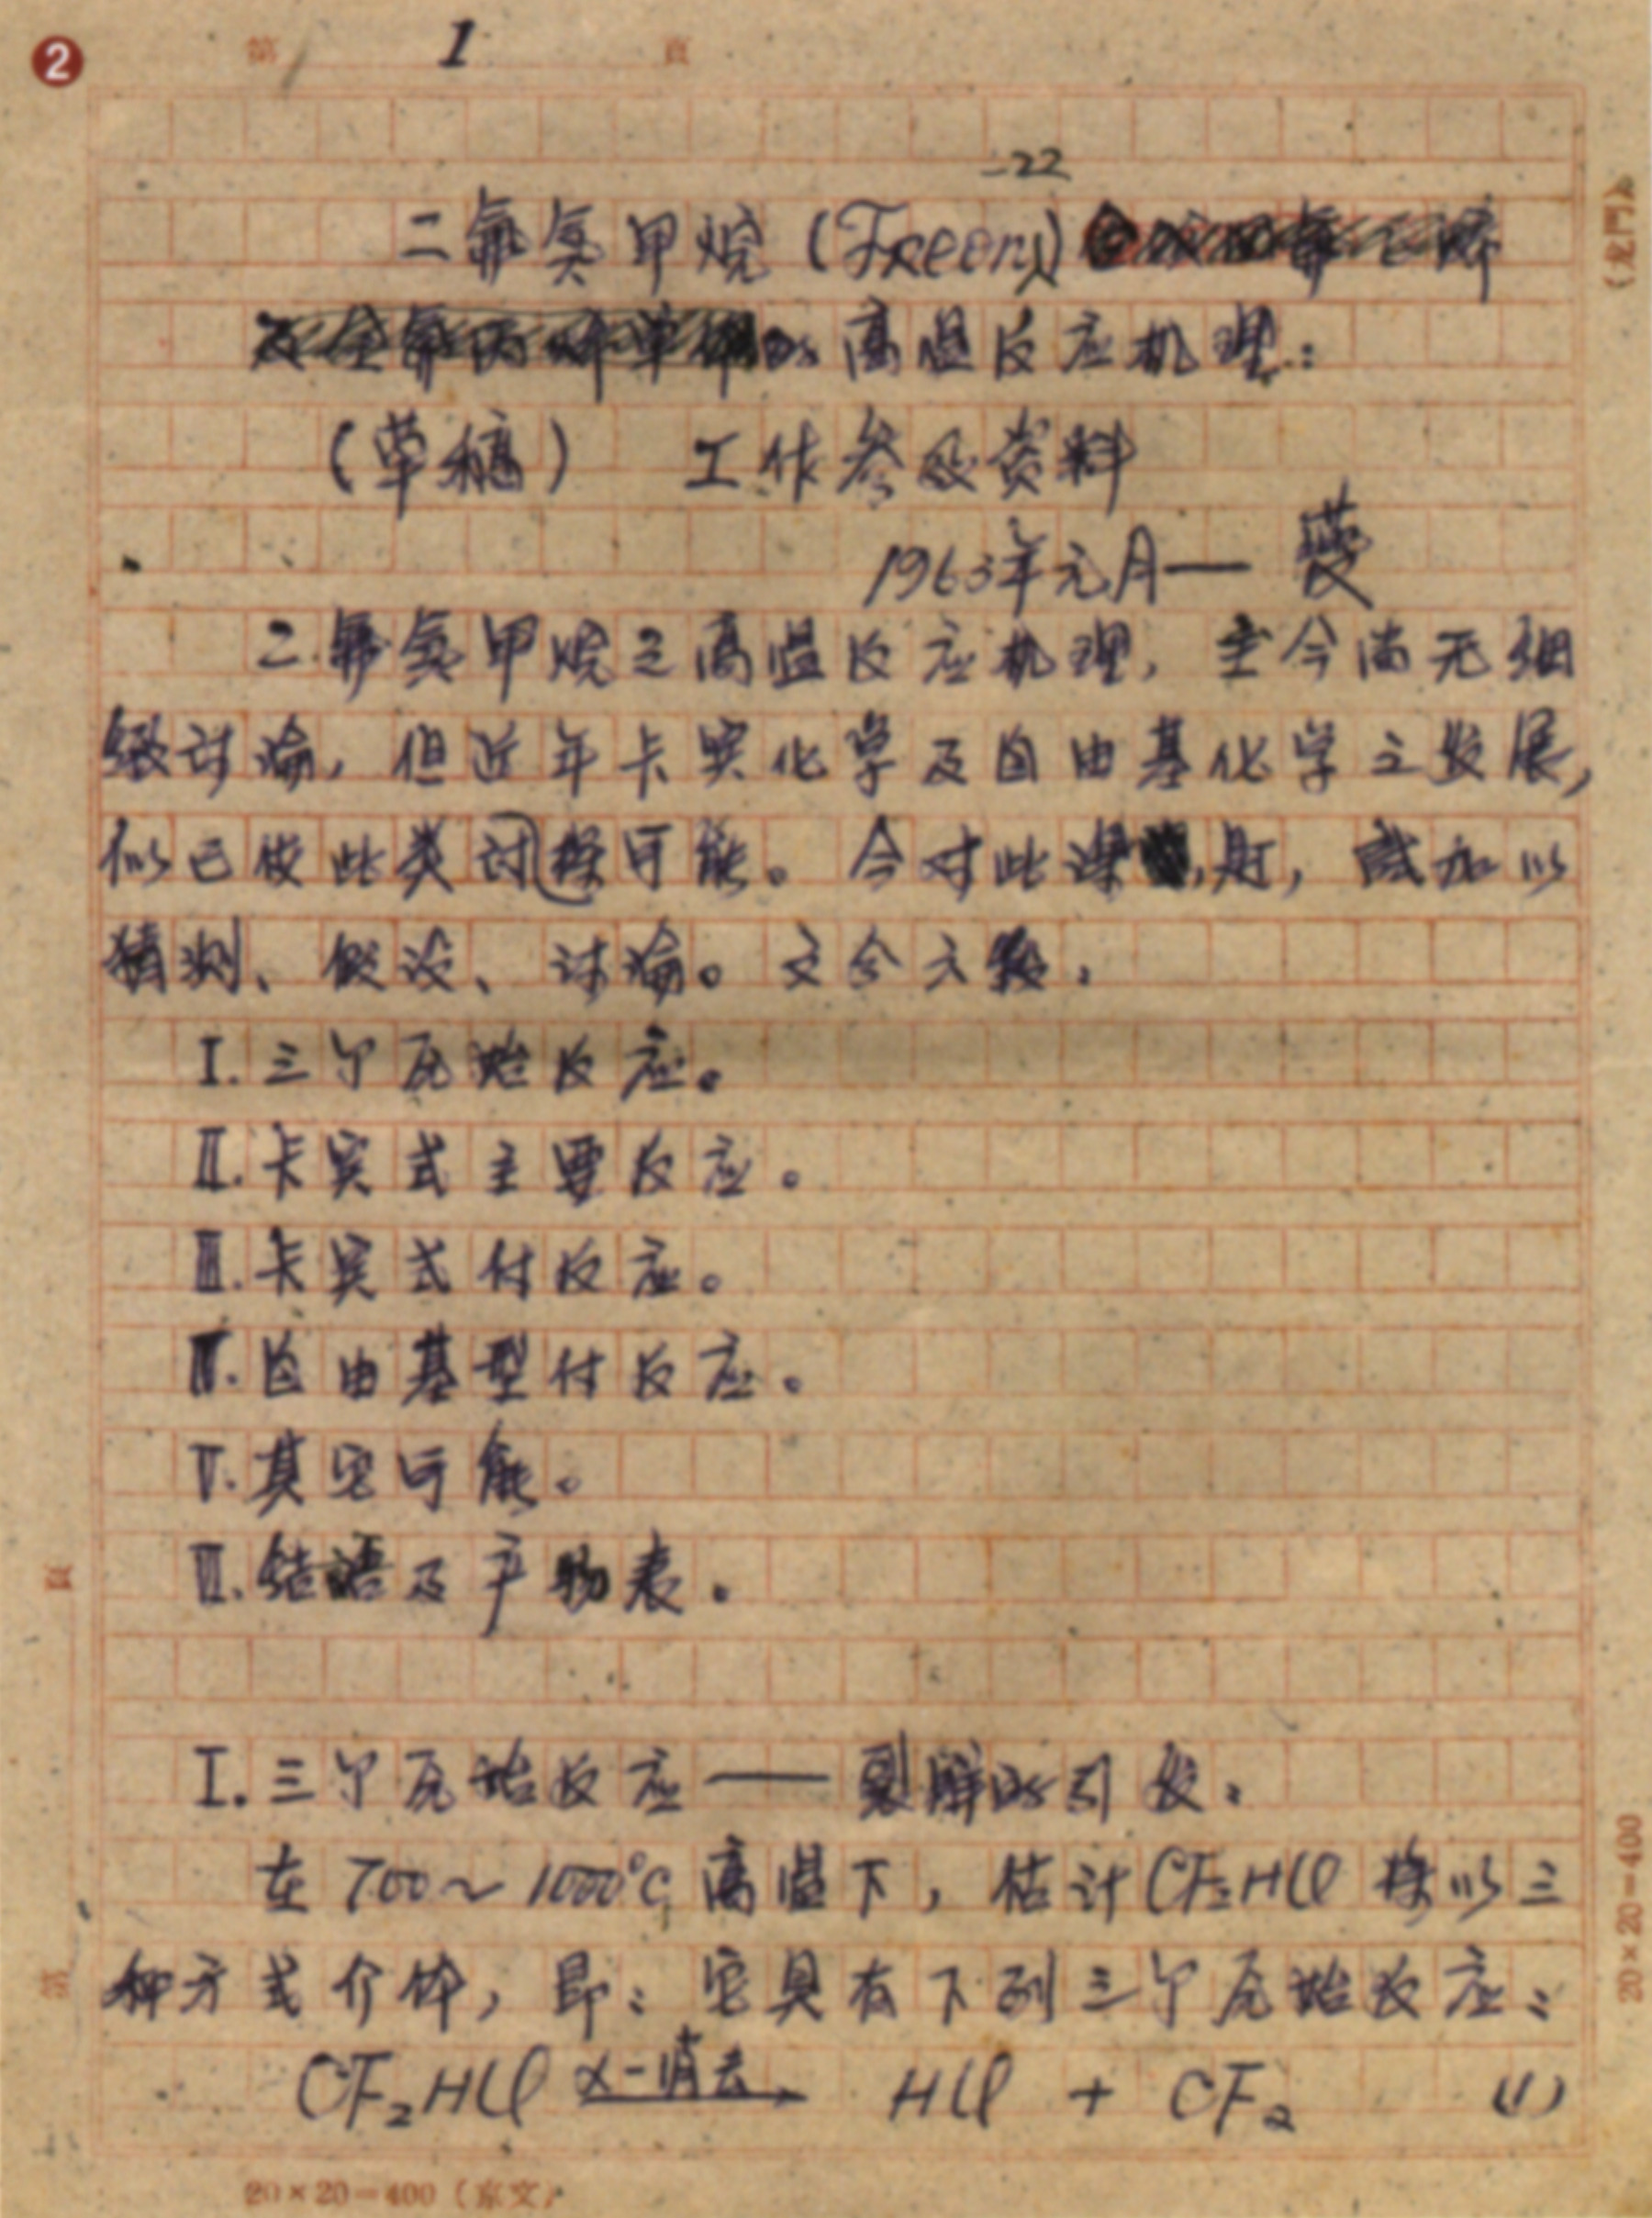 2
第 1 頁
-22
二氟氯甲烷(Freon)
的高温反应机理:
(草稿) 工作参及资料
1963年元月——
二氟氯甲烷之高温反应机理，至今尚无细
缀讨论，但近年卡宾化学及自由基化学之发展，
似已使此类讨探可能。今对此课，是，试加以
猜测、假设、讨论。文分六段：
I.三个瓦始反应。
II.卡宾式主要反应。
III.卡宾式付反应。
IV.自由基型付反应。
V.其它可能。
VI.结语及产物表。
I.三个瓦始反应——裂解的引发：
在700～1000°C高温下，估计CF₂HCl探以三
种方式介体，即：它具有下列三个瓦始反应：
CF₂HCl α-消去→ HCl + CF₂ (1)
20×20=400 (京文)
20×20=400
(龙門)
第 頁